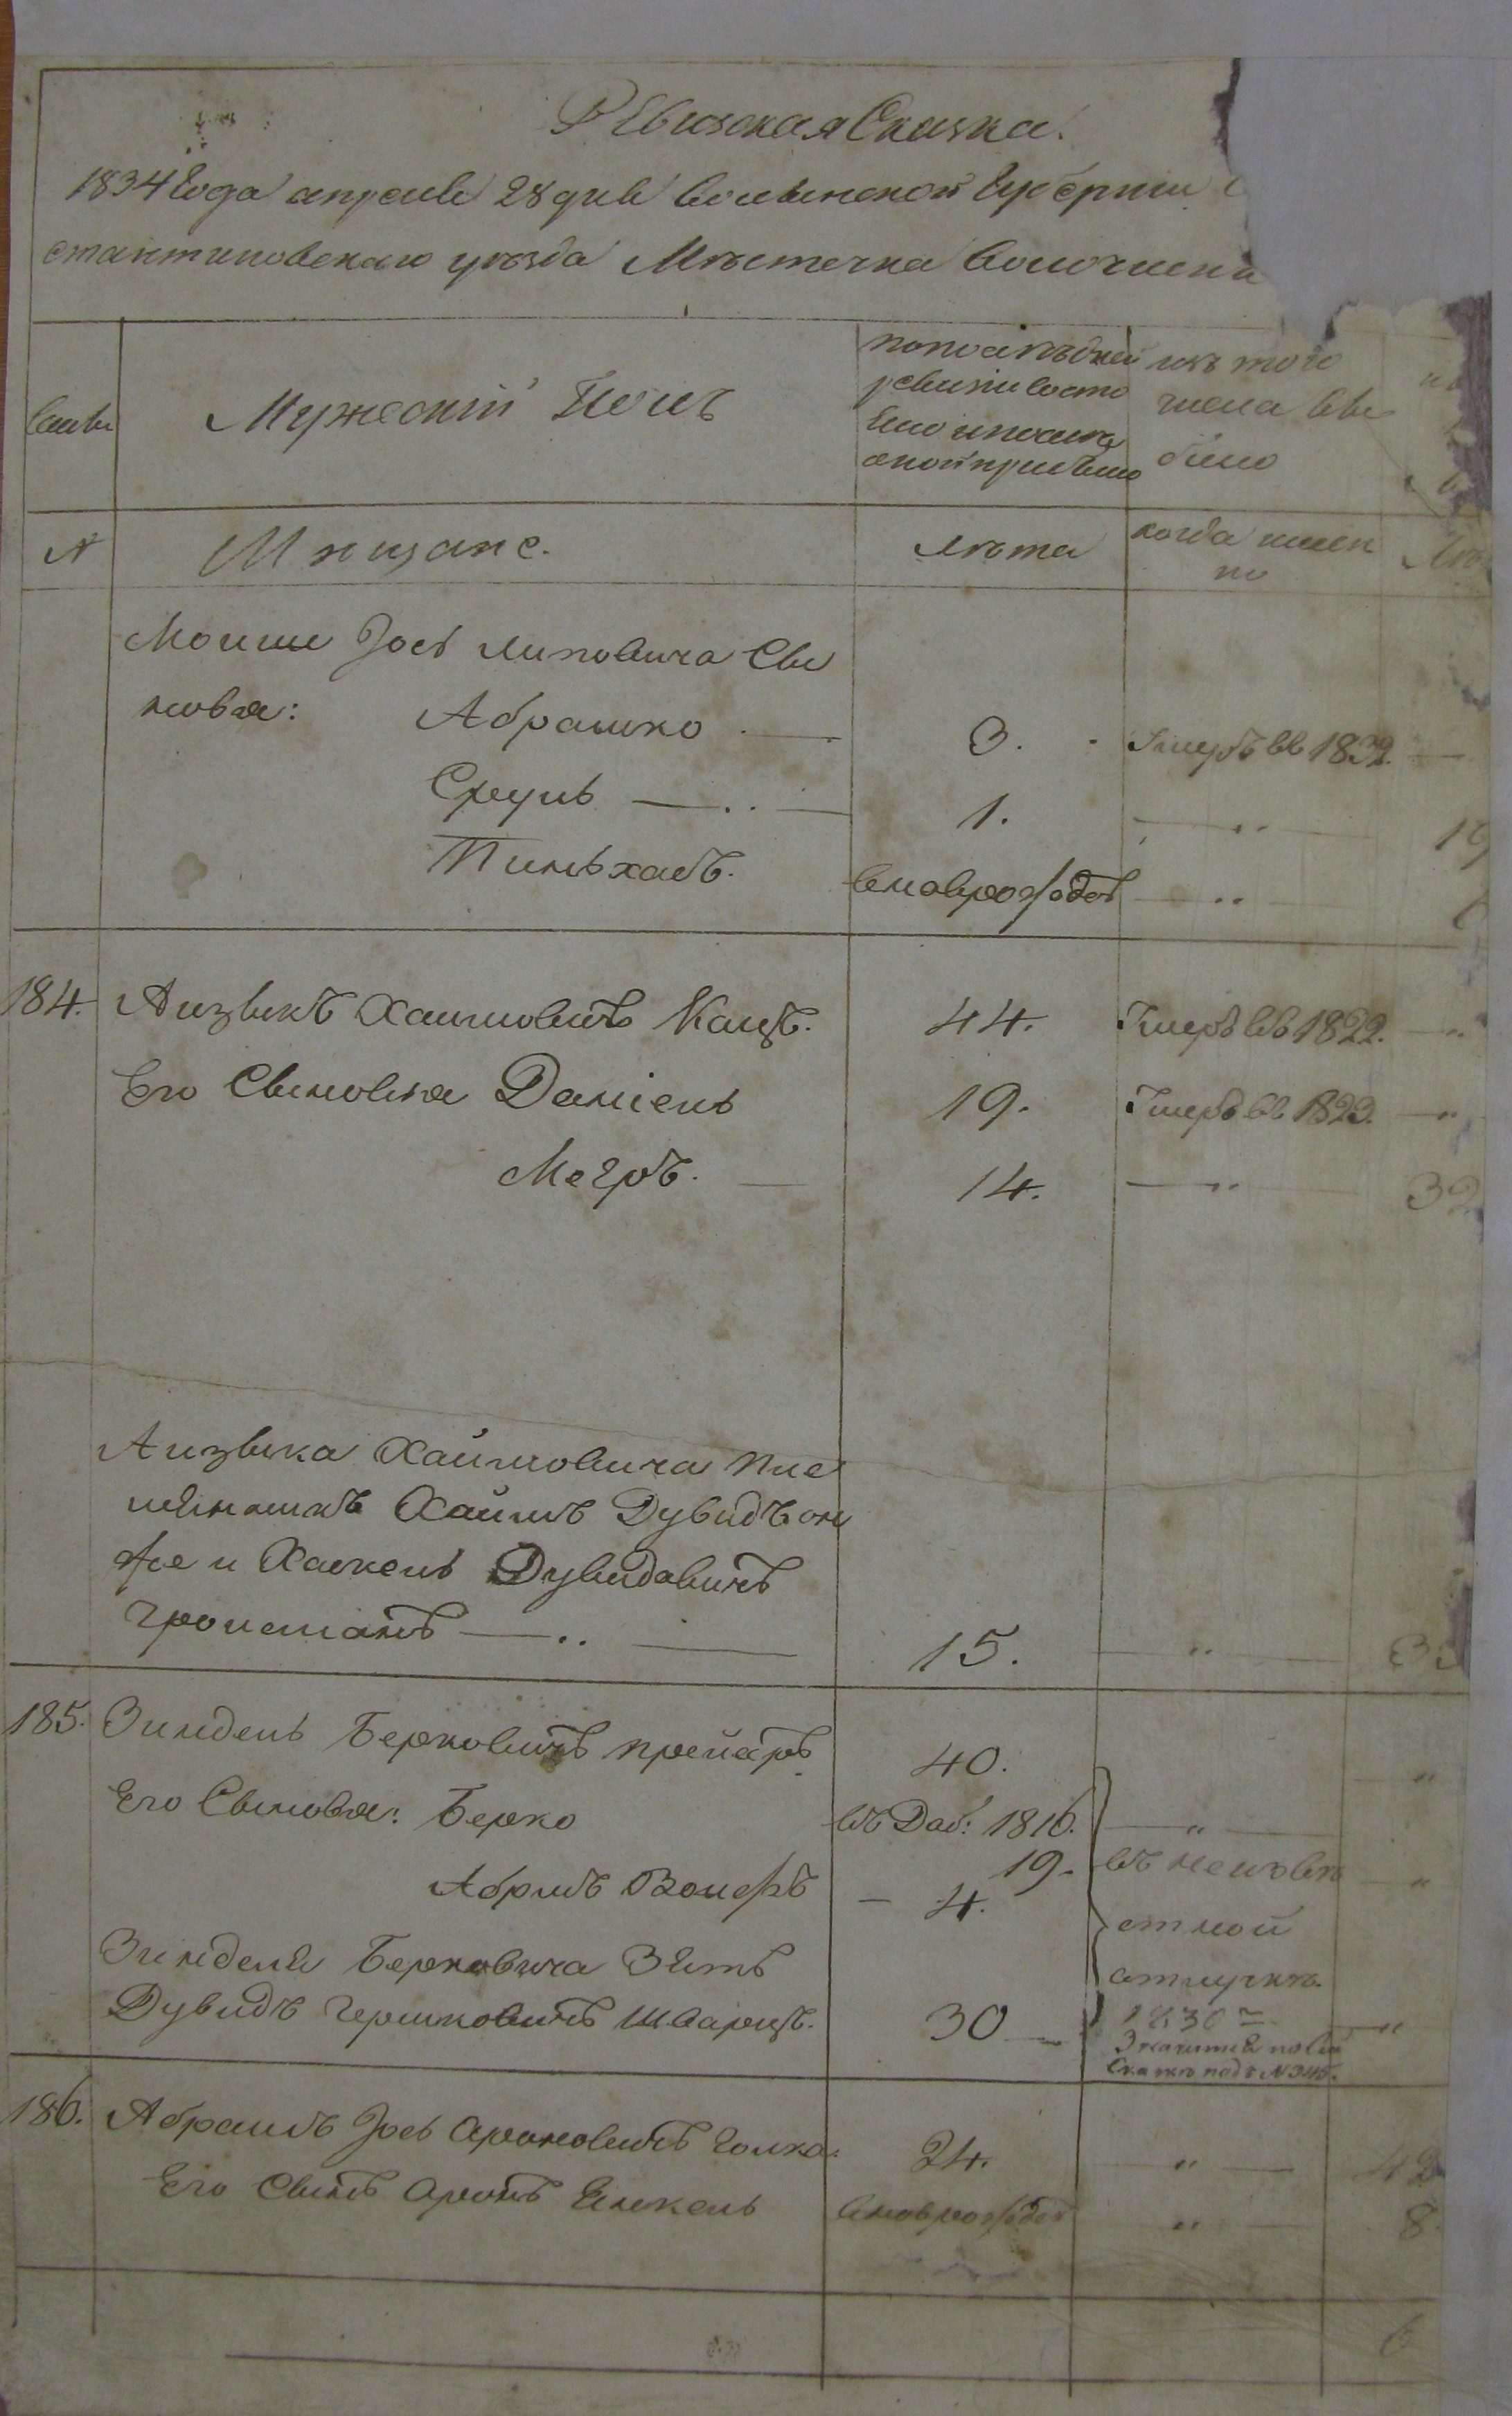 Ревизская Сказка.
1834 Года апреля 28 дня Волынской Губернии
стантиновскаго уезда Местечка Волочиска
Семьи
Мужеский Полъ
по последней ревизии состояло и после оной прибыло
изъ того числа выбыло
N
Мещане.
Лета
когда именно
Моши Iось Липовича Сы
новья: Абрамко 3. Умеръ въ 1832.
Сруль 1. 19
Пиньхасъ. вновьрожденъ
184. Аизыкъ Хаимовичъ Кацъ. 44. Умеръ въ 1822.
Его Сыновья Данiель 19. Умеръ въ 1823.
Мееръ. 14. 32
Аизыка Хаимовича пле
мянникъ Хаимъ Дувидъ он
же и Хаскель Дувидовичъ
Гройсманъ 15.
185. Зиндель Берковичъ Прейсъ 40.
Его Сыновья: Берко въ Доб: 1816. 19.
Абрамъ Вольфъ 4.
въ неизвестной отлучке.
1830
Зинделя Берковича Зять
Дувидъ Гершковичъ Шварцъ. 30
Значится по сей
Сказке подъ N
186. Абрамъ Iось Ароновичъ Голка. 24. 42
Его Сынъ Аронъ Янкель вновьрожденъ 8.